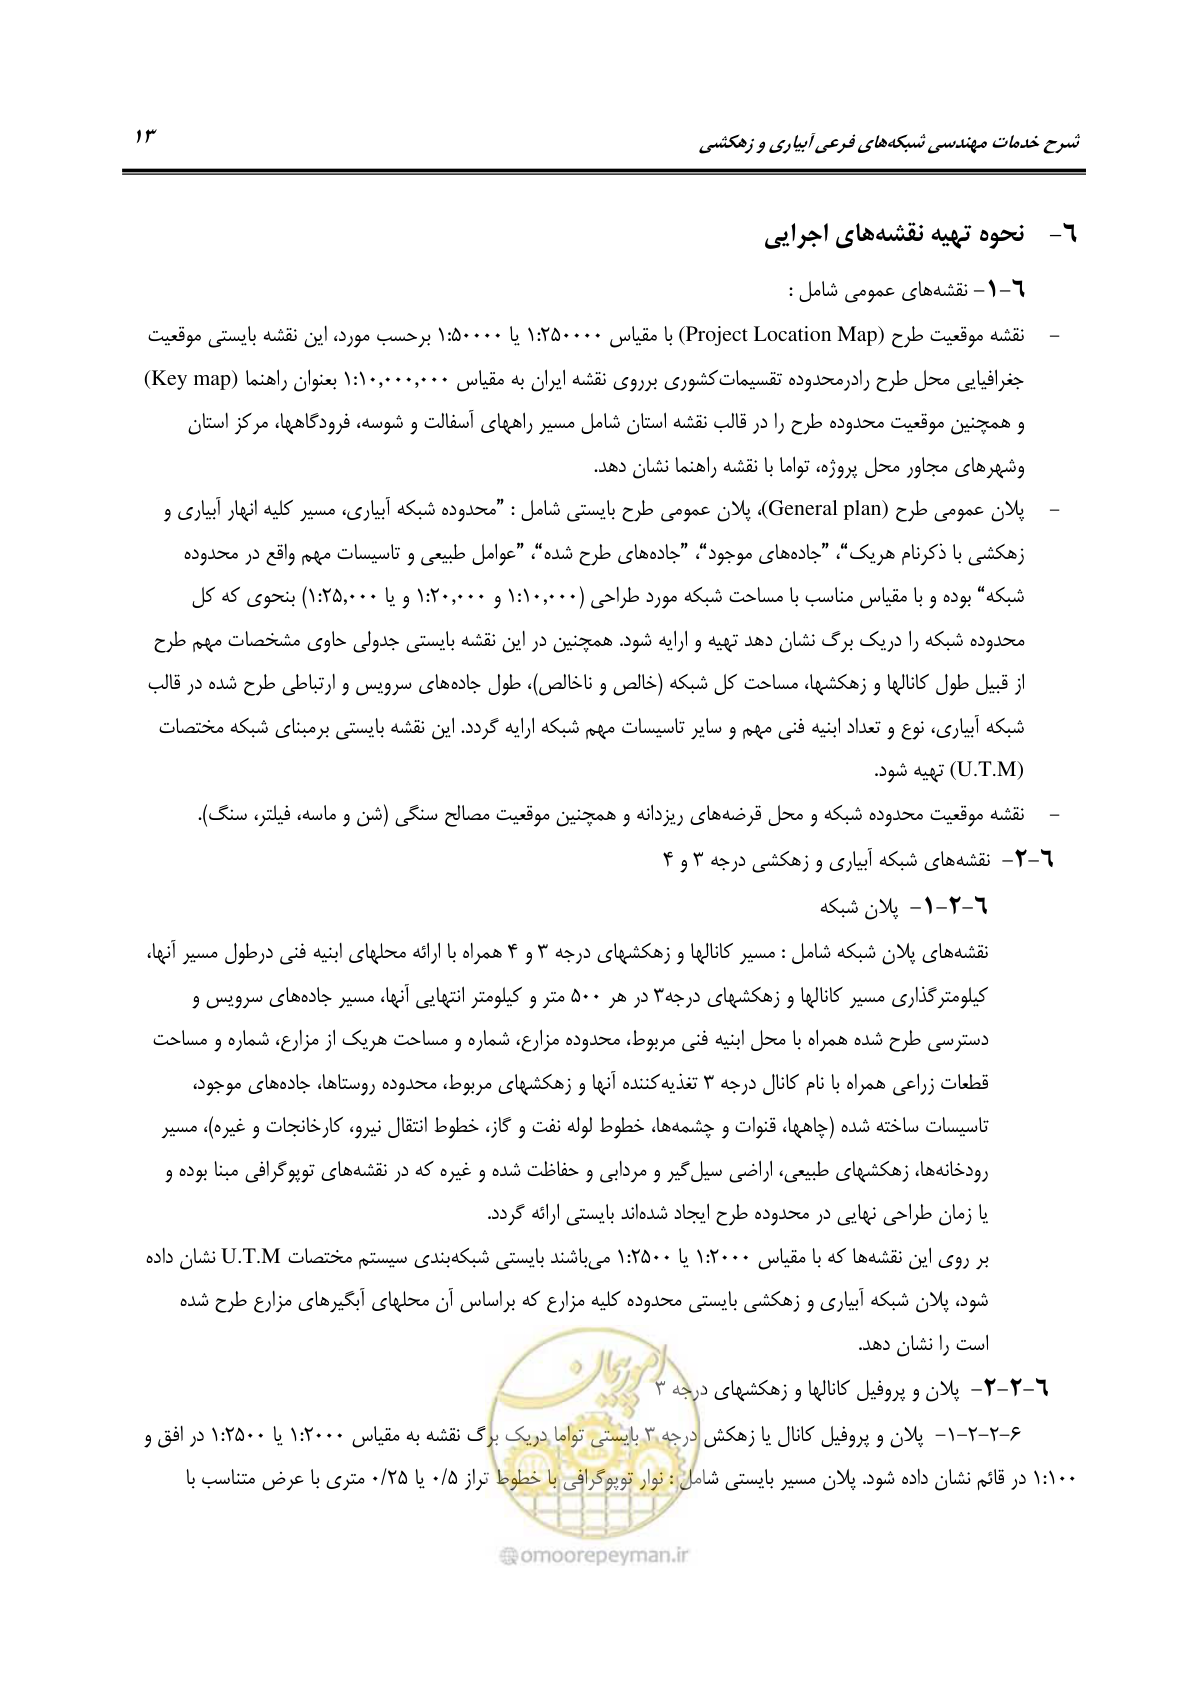 شرح خدمات مهندسی شبکه‌های فرعی آبیاری و زهکشی
۱۳
۶- نحوه تهیه نقشه‌های اجرایی
۶-۱- نقشه‌های عمومی شامل :
- نقشه موقعیت طرح (Project Location Map) با مقیاس ۱:۲۵۰۰۰۰ یا ۱:۵۰۰۰۰ برحسب مورد، این نقشه بایستی موقعیت
جغرافیایی محل طرح رادرمحدوده تقسیمات‌کشوری برروی نقشه ایران به مقیاس ۱:۱۰,۰۰۰,۰۰۰ بعنوان راهنما (Key map)
و همچنین موقعیت محدوده طرح را در قالب نقشه استان شامل مسیر راههای آسفالت و شوسه، فرودگاهها، مرکز استان
وشهرهای مجاور محل پروژه، تواما با نقشه راهنما نشان دهد.
- پلان عمومی طرح (General plan)، پلان عمومی طرح بایستی شامل : ”محدوده شبکه آبیاری، مسیر کلیه انهار آبیاری و
زهکشی با ذکرنام هریک“، ”جاده‌های موجود“، ”جاده‌های طرح شده“، ”عوامل طبیعی و تاسیسات مهم واقع در محدوده
شبکه“ بوده و با مقیاس مناسب با مساحت شبکه مورد طراحی (۱:۱۰,۰۰۰ و ۱:۲۰,۰۰۰ و یا ۱:۲۵,۰۰۰) بنحوی که کل
محدوده شبکه را دریک برگ نشان دهد تهیه و ارایه شود. همچنین در این نقشه بایستی جدولی حاوی مشخصات مهم طرح
از قبیل طول کانالها و زهکشها، مساحت کل شبکه (خالص و ناخالص)، طول جاده‌های سرویس و ارتباطی طرح شده در قالب
شبکه آبیاری، نوع و تعداد ابنیه فنی مهم و سایر تاسیسات مهم شبکه ارایه گردد. این نقشه بایستی برمبنای شبکه مختصات
(U.T.M) تهیه شود.
- نقشه موقعیت محدوده شبکه و محل قرضه‌های ریزدانه و همچنین موقعیت مصالح سنگی (شن و ماسه، فیلتر، سنگ).
۶-۲- نقشه‌های شبکه آبیاری و زهکشی درجه ۳ و ۴
۶-۲-۱- پلان شبکه
نقشه‌های پلان شبکه شامل : مسیر کانالها و زهکشهای درجه ۳ و ۴ همراه با ارائه محلهای ابنیه فنی درطول مسیر آنها،
کیلومترگذاری مسیر کانالها و زهکشهای درجه۳ در هر ۵۰۰ متر و کیلومتر انتهایی آنها، مسیر جاده‌های سرویس و
دسترسی طرح شده همراه با محل ابنیه فنی مربوط، محدوده مزارع، شماره و مساحت هریک از مزارع، شماره و مساحت
قطعات زراعی همراه با نام کانال درجه ۳ تغذیه‌کننده آنها و زهکشهای مربوط، محدوده روستاها، جاده‌های موجود،
تاسیسات ساخته شده (چاهها، قنوات و چشمه‌ها، خطوط لوله نفت و گاز، خطوط انتقال نیرو، کارخانجات و غیره)، مسیر
رودخانه‌ها، زهکشهای طبیعی، اراضی سیل‌گیر و مردابی و حفاظت شده و غیره که در نقشه‌های توپوگرافی مبنا بوده و
یا زمان طراحی نهایی در محدوده طرح ایجاد شده‌اند بایستی ارائه گردد.
بر روی این نقشه‌ها که با مقیاس ۱:۲۰۰۰ یا ۱:۲۵۰۰ می‌باشند بایستی شبکه‌بندی سیستم مختصات U.T.M نشان داده
شود، پلان شبکه آبیاری و زهکشی بایستی محدوده کلیه مزارع که براساس آن محلهای آبگیرهای مزارع طرح شده
است را نشان دهد.
۶-۲-۲- پلان و پروفیل کانالها و زهکشهای درجه ۳
۶-۲-۲-۱- پلان و پروفیل کانال یا زهکش درجه ۳ بایستی تواما دریک برگ نقشه به مقیاس ۱:۲۰۰۰ یا ۱:۲۵۰۰ در افق و
۱:۱۰۰ در قائم نشان داده شود. پلان مسیر بایستی شامل : نوار توپوگرافی با خطوط تراز ۰/۵ یا ۰/۲۵ متری با عرض متناسب با
امور پیمان
@omoorepeyman.ir